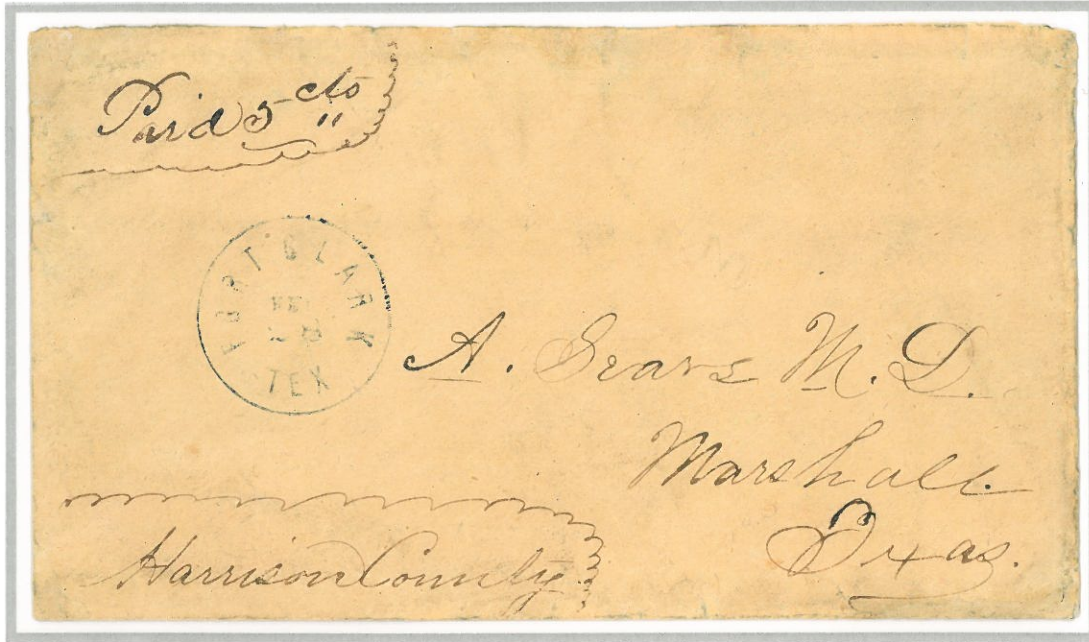 Paid 5 cts
FORT CLARK
TEX
A. Sears M. D.
Marshall
Texas.
Harrison County